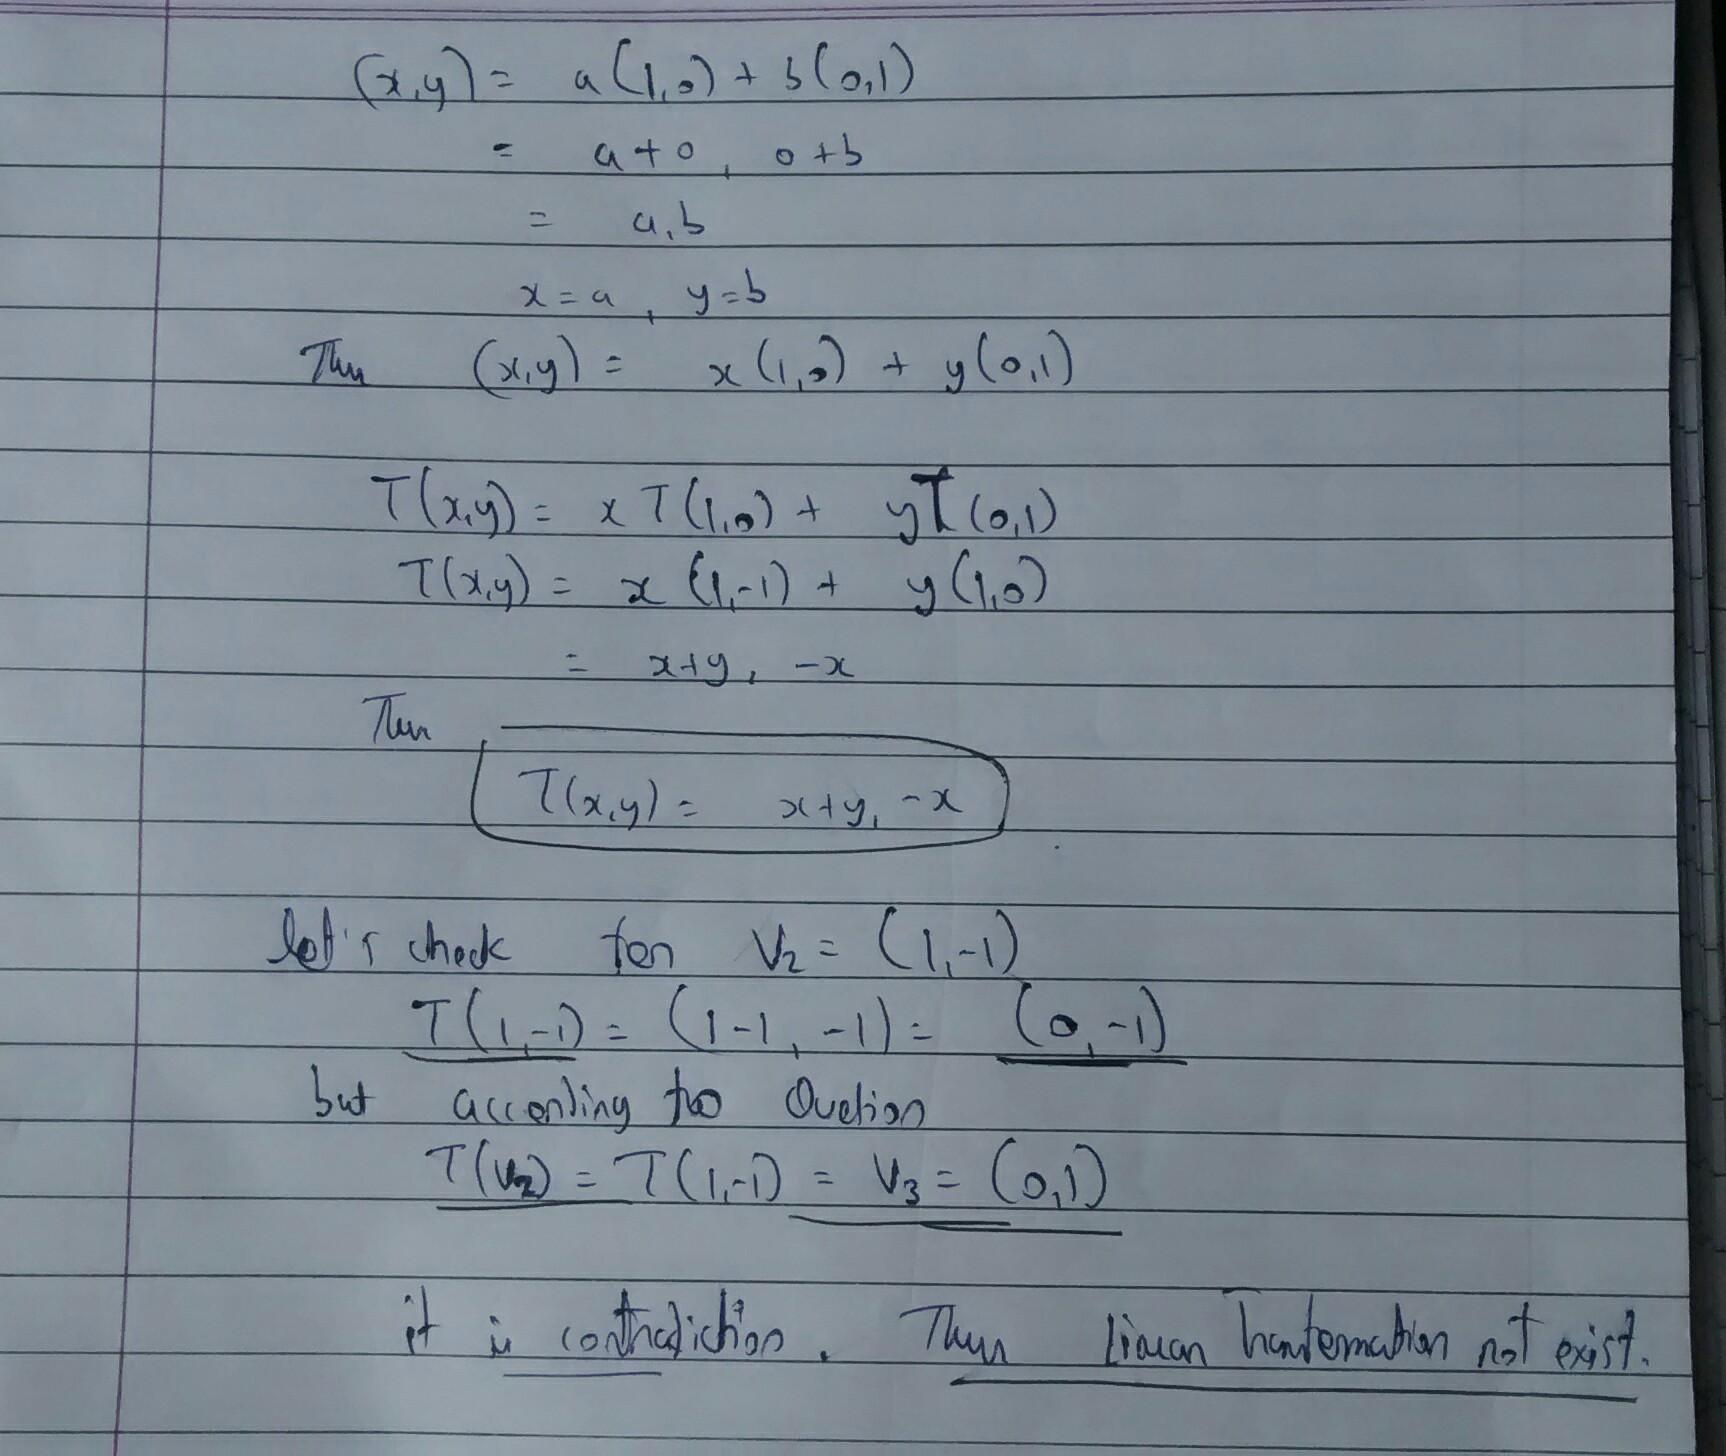 (x,y) = a(1,0) + b(0,1)
= a+0, 0+b
= a,b
x=a, y=b
Thus (x,y) = x(1,0) + y(0,1)
T(x,y) = x T(1,0) + yT(0,1)
T(x,y) = x (1,-1) + y(1,0)
= x+y, -x
Then
T(x,y) = x+y, -x
let's check for V₂ = (1,-1)
T(1,-1) = (1-1, -1) = (0,-1)
but according to Quetion
T(V₂) = T(1,-1) = V₃ = (0,1)
it is contradiction. Thus Linear transformation not exist.